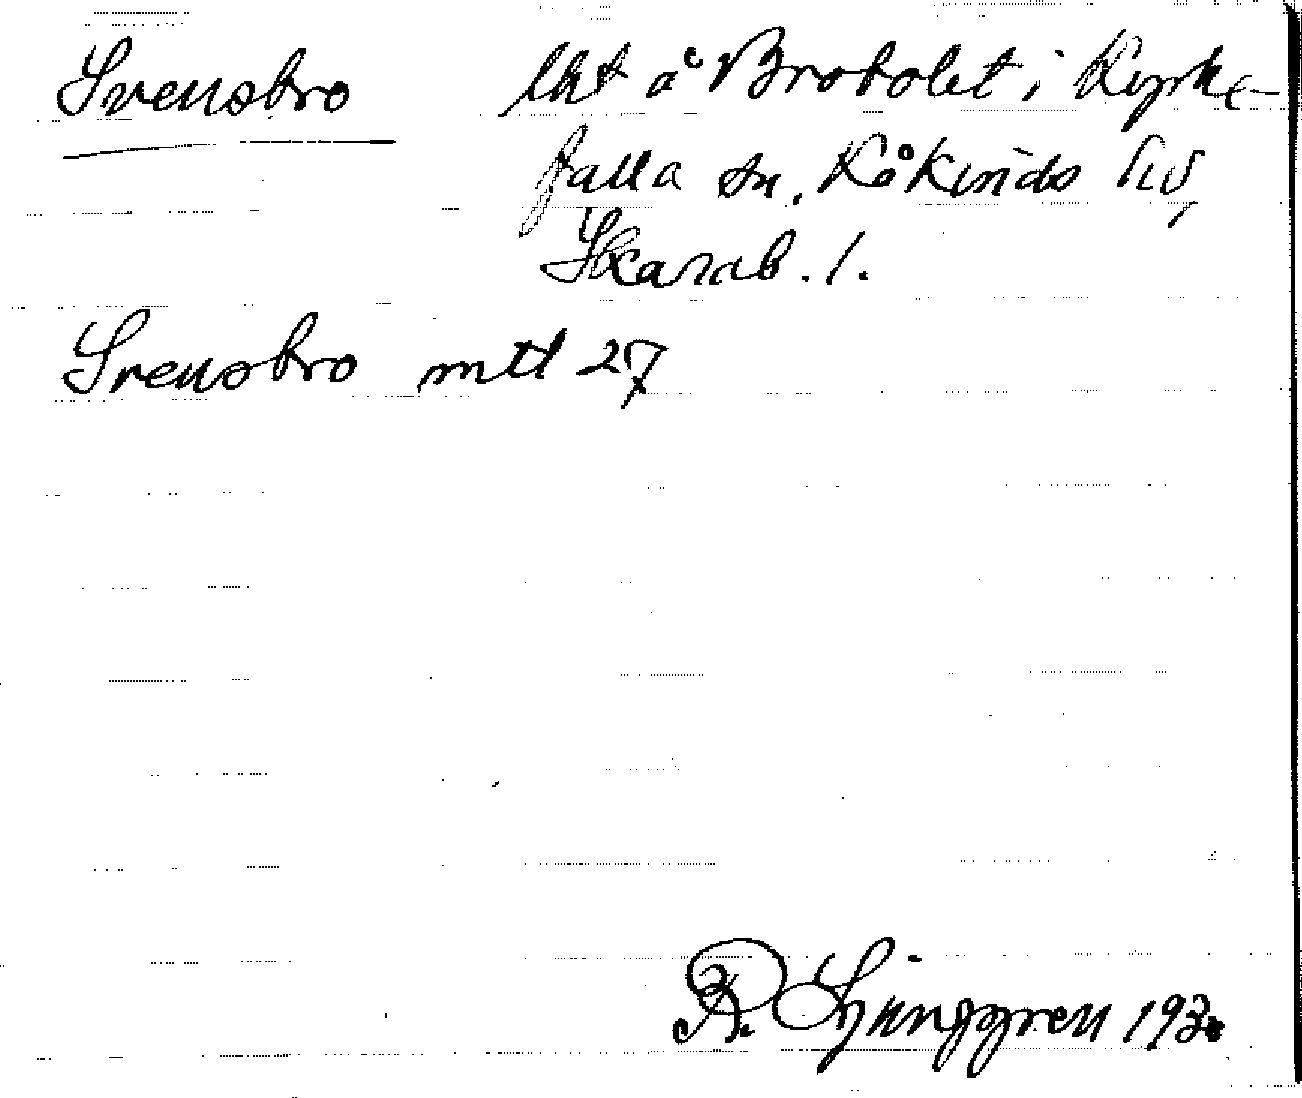 Svensbro lht å Brobolet i Kyrke-
falla sn, Kåkinds hd,
Skarab. l.
Svensbro mtl 27
R. Ljunggren 1930